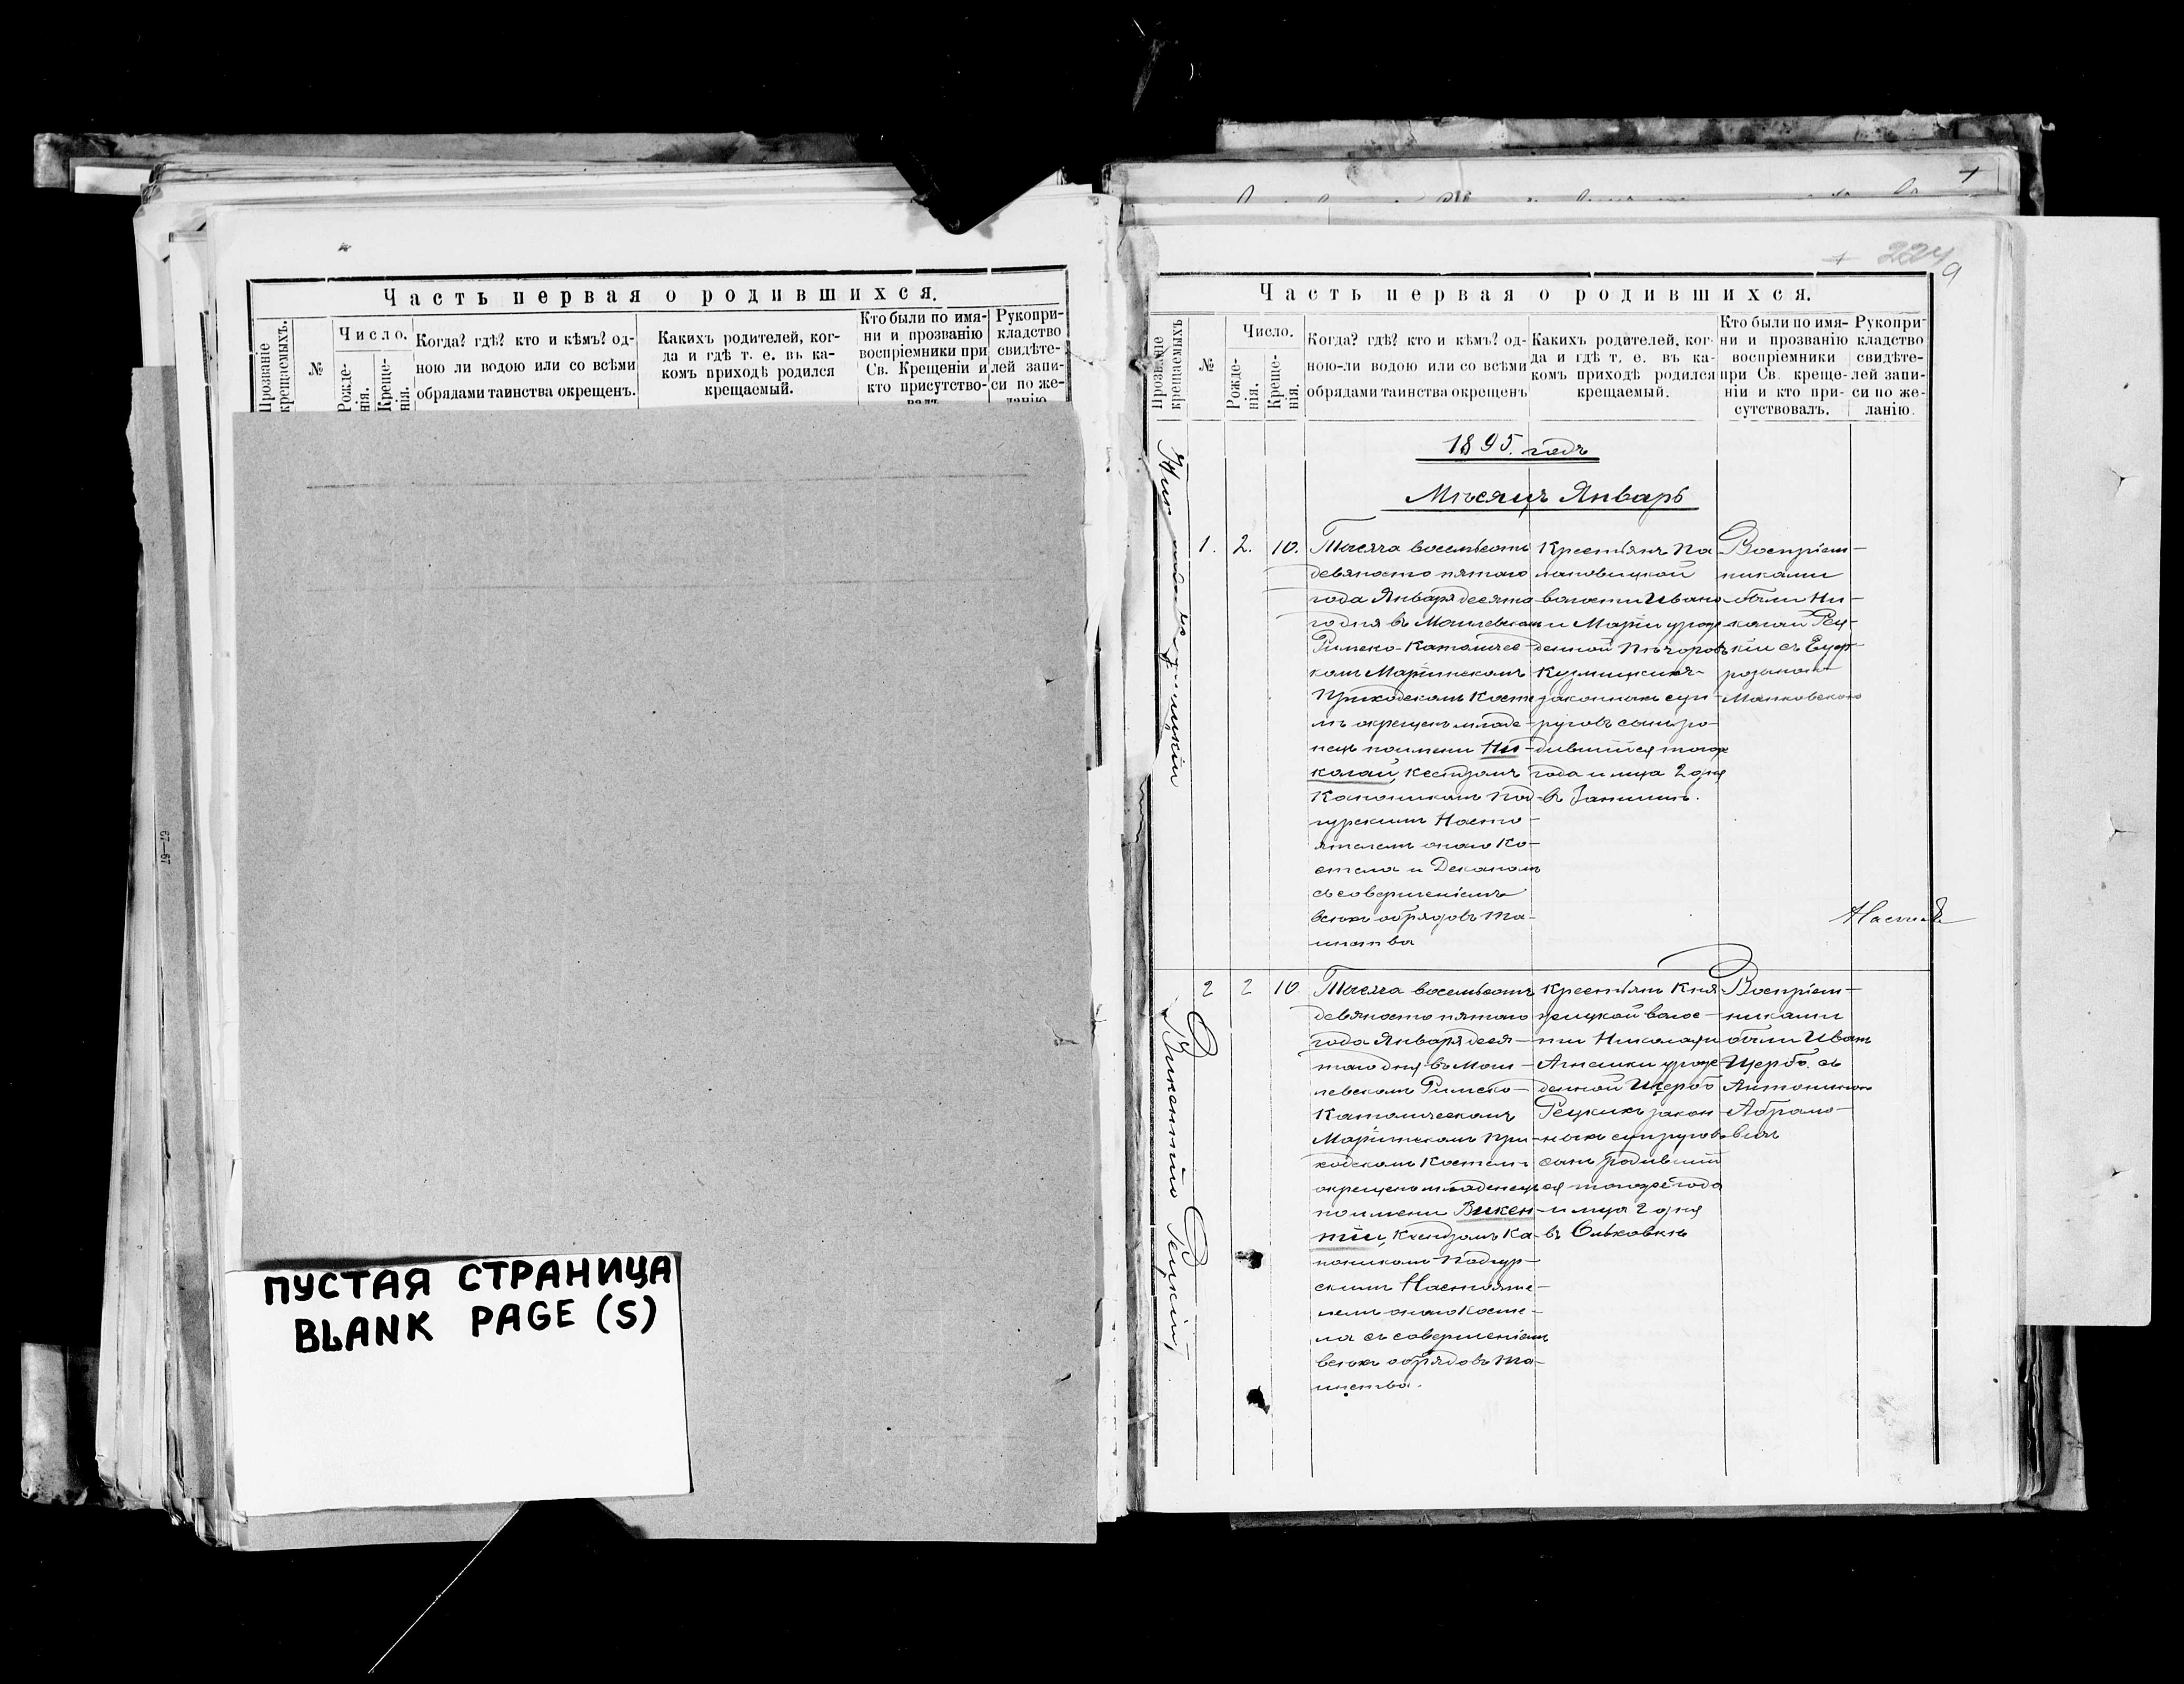 Часть первая о родившихся.
Прозваніе крещаемыхъ.
№
Число.
Рожде-
нія.
Креще-
нія.
Когда? гдѣ? кто и кѣмъ? од-
ною ли водою или со всѣми
обрядами таинства окрещенъ.
Какихъ родителей, ког-
да и гдѣ т. е. въ ка-
комъ приходѣ родился
крещаемый.
Кто были по имя-
ни и прозванію
воспріемники при
Св. Крещеніи и
кто присутство-
валъ
Рукопри-
кладство
свидѣте-
лей запи-
си по же-
ланію
67—67
ПУСТАЯ СТРАНИЦА
BLANK PAGE (S)
224
9
Часть первая о родившихся.
Прозваніе
крещаемыхъ
№
Число.
Рожде-
нія.
Креще-
нія.
Когда? гдѣ? кто и кѣмъ? од-
ною-ли водою или со всѣми
обрядами таинства окрещенъ
Какихъ родителей, ког-
да и гдѣ т. е. въ ка-
комъ приходѣ родился
крещаемый.
Кто были по имя-
ни и прозванію
воспріемники
при Св. креще-
ніи и кто при-
сутствовалъ.
Рукопри-
кладство
свидѣте-
лей запи-
си по же-
ланію.
1895. годъ
Мѣсяцъ Январь
1.
2.
10.
Тысяча восемьсотъ
девяносто пятаго
года Января десята
го дня въ
Римско-Католичес-
комъ Маріинскомъ
Приходскомъ Косте
лѣ окрещенъ младе-
нецъ по имени Ни-
колай, Ксендзомъ
Каноникомъ Под-
гурскимъ Насто-
ятелемъ онаго Ко-
стела и Деканомъ
съ совершеніемъ
всѣхъ обрядовъ Та-
инства
Крестьянъ
волости Ивана
и Маріи урож
денной
законныхъ суп-
руговъ сынъ ро-
дившійся тогоже
года и мца 2 дня
въ
Воспріем-
никами
были Ни-
колай Рец-
кій съ
2
2
10
Викентій Рецкій
Тысяча восемьсотъ
девяносто пятаго
года Января деся-
таго дня въ
Римско-
Католическомъ
Маріинскомъ При-
ходскомъ Костелѣ
окрещенъ младенецъ
по имени Викен-
тій, Ксендзомъ Ка-
ноникомъ Подгур-
скимъ Настояте-
лемъ онаго Косте-
ла съ совершеніемъ
всѣхъ обрядовъ Та-
инства.
Крестьянъ Кня
жицкой волос-
ти Николая и
урож
денной Щербо
Рецкихъ закон-
ныхъ супруговъ
сынъ родивший
ся тогоже года
и мца 2 дня
въ Ольховкѣ
Воспріем-
никами
были Иванъ
Щербо съ
Антониною
Абрамо-
вичъ